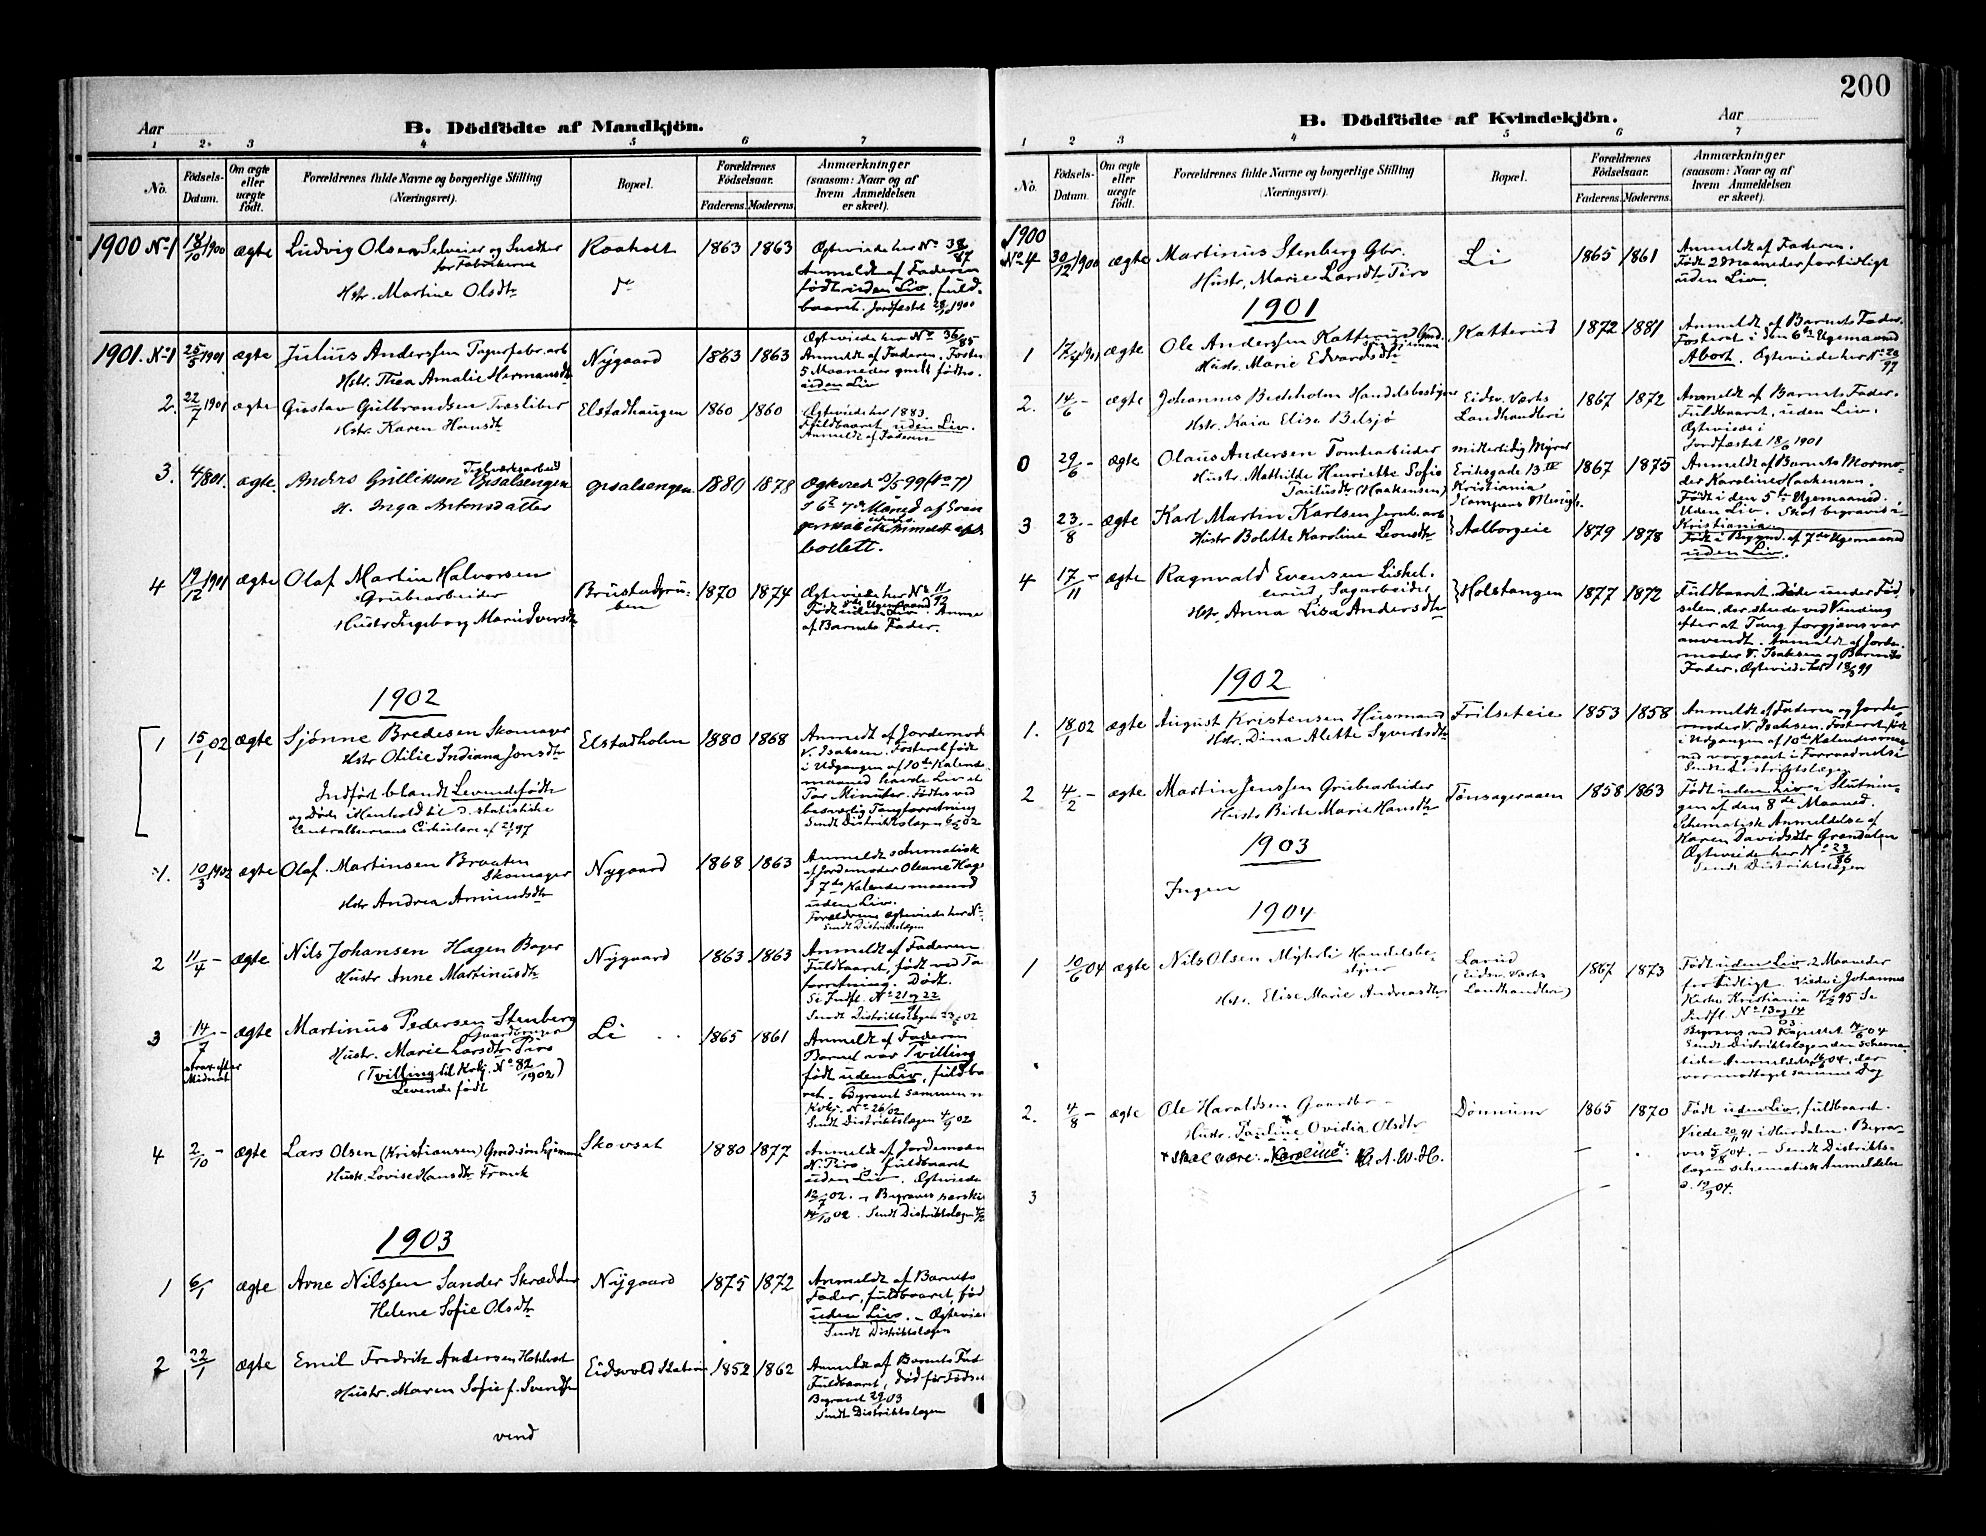 200
Aar
B. Dödfödte af Mandkjön.
1 2 3 4 5 6 7
No.
Födsels-Datum.
Om ægte eller uægte födt.
Forældrenes fulde Navne og borgerlige Stilling (Næringsvei).
Bopæl.
Forældrenes Födselsaar.
Faderens. Moderens.
Anmærkninger (saasom: Naar og af hvem Anmeldelsen er skeet).
1900 No 1 18/10 1900 ægte Ludvig Olsen Selveier og Snedker Raaholt 1863 1863 Ægteviede her No 38/87
for Fabrikerne
Anmeldt af Faderen
Hstr. Martine Olsdtr do
født uden Liv, fuld-
baaret. Jordfæstet 1900
1901. No 1 25/3 1901 ægte Julius Anderssen Nygaard 1863 1863 Ægteviede her No 36/85
Anmeldt af Faderen. Foster
Hstr. Thea Amalie Hermansdtr
5 Maaneder gmlt fødtes.
uden Liv
2. 22/7 1901 ægte Gustav Gulbrandsen Træsliber Elstadhaugen 1860 1860 Ægteviede her 1883.
Hstr. Karen Hansdtr
Fuldbaaret, uden Liv.
Anmeldt af Faderen
3. 4/8 01. ægte. Anders Gulliksen Teglværksarbeid 1880 1878
H. Inga Antonsdatter
4 19/12 1901 ægte Olaf Martin Halvorsen Brustadgru-ben 1870 1874 Ægteviede her No 11/92
Grubearbeider
Hustr Ingeborg
af Barnets Fader.
1902
1 15/1 02 ægte Sjønne Bredesen Skomager Elstadholm 1880 1868 Anmeldt af Jordemode
Hstr Otilie Indiana Jonsdtr
V. Isaksen. Fosteret født
i Udgangen af 10de Kalend.
maaned havde Liv et
Indført blandt Levendefødte
Par Minuter. Fødtes ved
og Døde i Henhold til d. statistiske
besværlig Tangforretning
Centralbureaus Cirkulære af
Sendt Distriktslægen
1. 10/3 1902 ægte Olaf Martinsen Braaten Nygaard 1868 1863 Anmeldt schematisk
Skomager
af Jordemoder Oleane Hag
Hstr Andrea Amundsdtr
i 7de Kalendermaaned
uden Liv.
Forældrene ægteviede her No
Sendt Distriktslægen
2 11/4 – ægte Nils Johansen Hagen Bager Nygaard 1863 1863 Anmeldt af Faderen
Hustr Anne Martinusdtr
Fuldbaaret, født ved Ta
forretning. Dødt.
Se Indfl. No 21 og 22
Sendt Distriktslægen
3 14/7 – ægte Martinus Pedersen Stenberg Li 1865 1861 Anmeldt af Faderen
Gaardbruger
Hustr. Marie Larsdtr Piro
Barnet var Tvilling
strax efter Midnat
(Tvilling til Kvkj. No 82/1902)
født uden Liv, fuldba
Levende født
ret. – Begravet sammen m
Sendt Distriktslægen 4/9 02
4 2/10 – ægte Lars Olsen (Kristiansen) Skovset 1880 1877 Anmeldt af Jordemoder
Hustr. Lovise Hansdtr
N. Piro. Fuldbaaret
uden Liv. Ægteviede
12/7 02. – Begraves
14/10 02. Sendt Distriktslægen
1903
1 6/1 ægte Arne Nilssen Sander Skrædder Nygaard 1875 1872 Anmeldt af Barnets
Helene Sofie Olsdtr
Fader, fuldbaaret, fød
uden Liv. – Ægtevie
Sendt Distriktslægen
2 22/1 ægte Emil Fredrik Andersen Eidsvold Station 1852 1862 Anmeldt af Barnets Fad
Hustr. Maren Sofie f. Svends
Fuldbaaret, død før Fødsel
Begravet 29/1 03
Sendt Distriktslægen
vend
Aar
B. Dödfödte af Kvindekjön.
1 2 3 4 5 6 7
No.
Födsels-Datum.
Om ægte eller uægte födt.
Forældrenes fulde Navne og borgerlige Stilling (Næringsvei).
Bopæl.
Forældrenes Födselsaar.
Faderens. Moderens.
Anmærkninger (saasom: Naar og af hvem Anmeldelsen er skeet).
1900
No 4 30/12 1900 ægte Martinus Stenberg Gbr. Li 1865 1861 Anmeldt af Faderen.
Hustr. Marie Larsdtr Piro
Født 2 Maaneder fortidligt
uden Liv.
1901
1 17/4 1901 ægte Ole Anderssen Katterud Katterud 1872 1881 Anmeldt af Barnets Fader.
Hustr. Marie Edvardsdtr
Fosteret i den 6te Ugemaaned
Abort. Ægteviede her No 20/99
2. 14/6 – ægte Johannes Bedeholm Handelsbestyrer Eidsv. Værks Landhandleri 1867 1872 Anmeldt af Barnets Fader.
Hstr. Kaia Elise Belsjø
Fuldbaaret, uden Liv.
Jordfæstet 18/6 1901
0 29/6 – ægte Olaus Andersen Tomtearbeider midlertidig Myrer 1867 1875 Anmeldt af Barnets Mormo-
Hustr. Mathilde Henriette Sofie Eriksgade 13 IV
der Karoline Haakensen.
Paulusdtr (Haakensen) Kristiania
Født i den 5te Ugemaaned.
Kampens Menigh.
Uden Liv. Skal begraves i
Kristiania
3 23/8 – ægte Karl Martin Karlsen Jernb. arb Aalborgeie 1879 1878 Født i Begynd. af 7de Ugemaaned
Hustr Bolette Karoline Leonsdtr
uden Liv.
4 17/11 – ægte Ragnvald Evensen Liskel. Holstangen 1877 1872 Fuldbaaret. Døde under Fød-
erud, Sagarbeider
selen, der skede ved Vending
Hstr. Anna Lisa Andersdtr
efter at Tang forgjæves var
anvendt. Anmeldt af Jorde-
moder V. Isaksen og Barnets
Fader. Ægteviede her
1902
1. 18/1 02 ægte August Kristensen Husmand Frilseteie 1853 1858 Anmeldt af Faderen og Jorde-
Hstr. Dina Alette Syvertsdtr
moder V. Isaksen. Fosteret født
i Udgangen af 10de Kalendermaaned
Sendt Distriktslægen
2 4/2 – ægte Martin Jenssen Grubearbeider Tønsageraaen 1858 1863 Født uden Liv i Slutnin-
Hustr Birthe Marie Hansdtr
gen af den 8de Maaned.
Schematisk Anmeldelse af
Karen Davidsdtr Grøndalen
Ægteviede her No 23/86
Sendt Distriktslægen
1903
Ingen
1904
1 10/6 04 ægte Nils Olsen Myhrli Handelsbe- Larud 1867 1873 Født uden Liv 2 Maaneder
styrer (Eidsv. Værks
Hstr. Elise Marie Andreasdtr Landhandleri)
for tidligt. Viede i Johannes
Kirke Kristiania 17/3 95 Se
Indfl. No 13 og 14/03
Begraves ved Kapellet 14/6 04
Sendt Distriktslægen den schema-
tiske Anmeldelse 16/6 04, der
var modtaget samme Dag
2. 4/8 – ægte Ole Haraldsen Gaardbr – Dønnum 1865 1870 Født uden Liv, fuldbaaret.
Hustr. Pauline Ovidia Olsdtr
Viede 20/11 91 i Hurdalen. Begra-
* skal være: "Karoline":
ves 5/8 04. – Sendt Distrikts-
lægen schematisk Anmeldelse
d. 12/9 04.
3